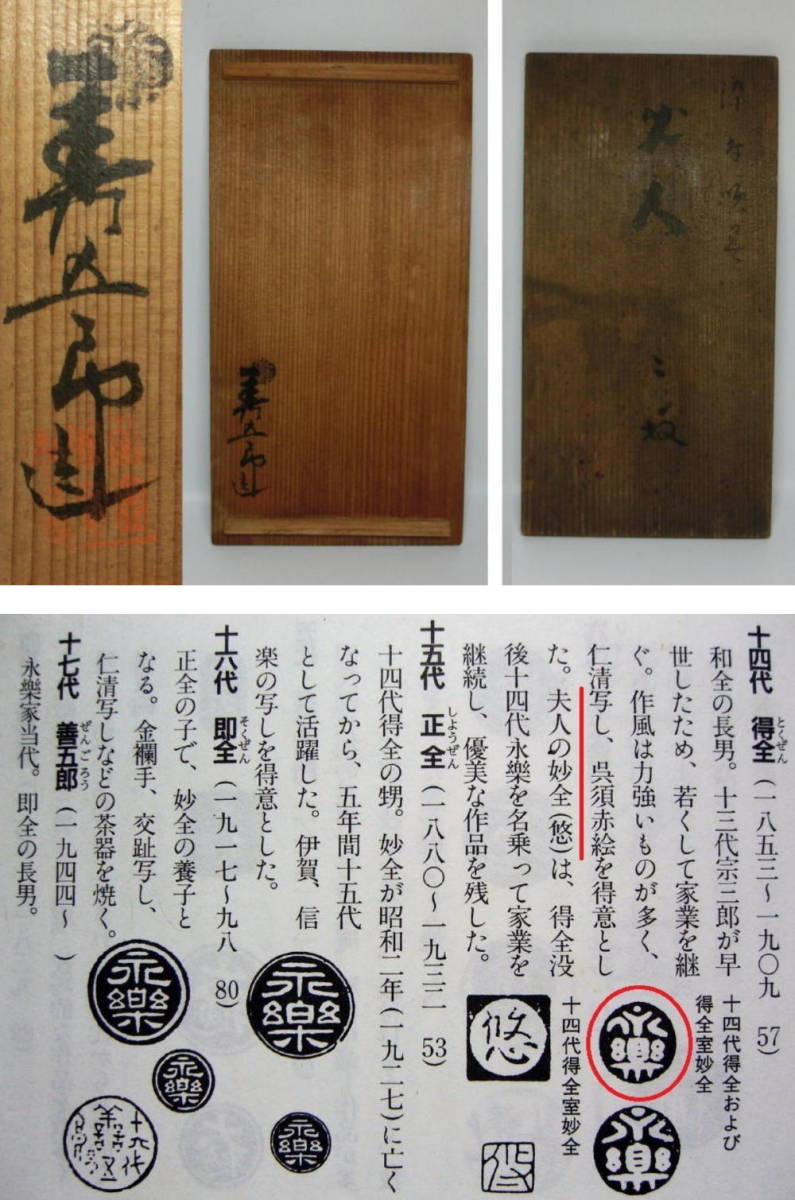 善五郎造
善五郎造
二枚
十四代 得全（とくぜん）（一八五三〜一九〇九 57）
和全の長男。十三代宗三郎が早
世したため、若くして家業を継
ぐ。作風は力強いものが多く、
仁清写し、呉須赤絵を得意とし
た。夫人の妙全（悠）は、得全没
後十四代永樂を名乗って家業を
継続し、優美な作品を残した。
十五代 正全（しようぜん）（一八八〇〜一九三二 53）
十四代得全の甥。妙全が昭和二年（一九二七）に亡く
なってから、五年間十五代
として活躍した。伊賀、信
楽の写しを得意とした。
十六代 即全（そくぜん）（一九一七〜九八 80）
正全の子で、妙全の養子と
なる。金襴手、交趾写し、
仁清写しなどの茶器を焼く。
十七代 善五郎（ぜんごろう）（一九四四〜 ）
永樂家当代。即全の長男。
十四代得全および
得全室妙全
永樂
永樂
十四代得全室妙全
悠
永樂
永樂
永樂
永樂